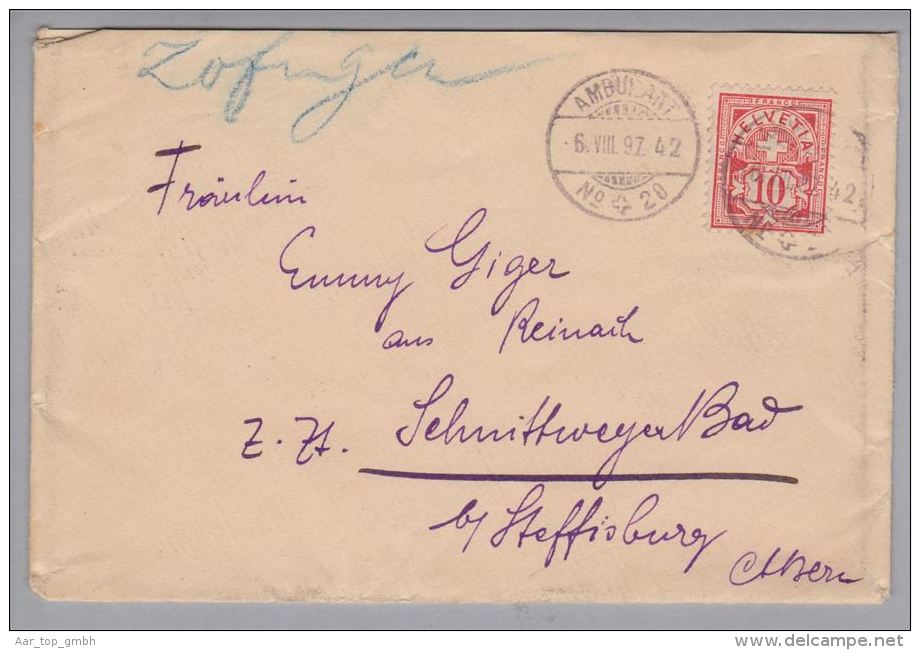 Zofingen
AMBULANT
6. VIII. 97. 42
No 20
FRANCO
HELVETIA
10
42
Fräulein
Emmy Giger
aus Reinach
z. Zt. Schnittweyer Bad
b/ Steffisburg
Ct Bern
Aar_top_gmbh
delcampe.net